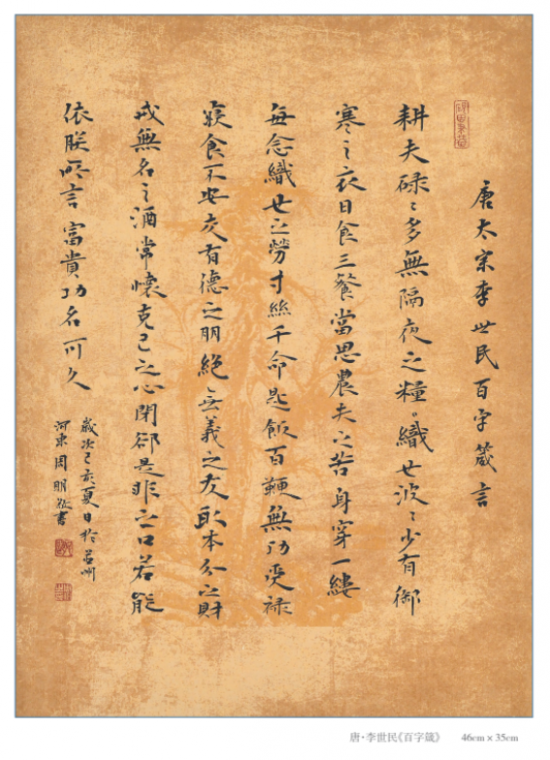 唐太宗李世民百字箴言
耕夫碌々多無隔夜之糧。織女波々少有御
寒之衣日食三餐當思農夫之苦身穿一縷
每念織女之勞寸絲千命匙飯百鞭無功受祿
寢食不安交有德之朋絕無義之友取本分之財
戒無名之酒常懷克己之心閉卻是非之口若能
依朕所言富貴功名可久
歲次己亥夏日於州
河東周明書
唐·李世民《百字箴》 46cm × 35cm